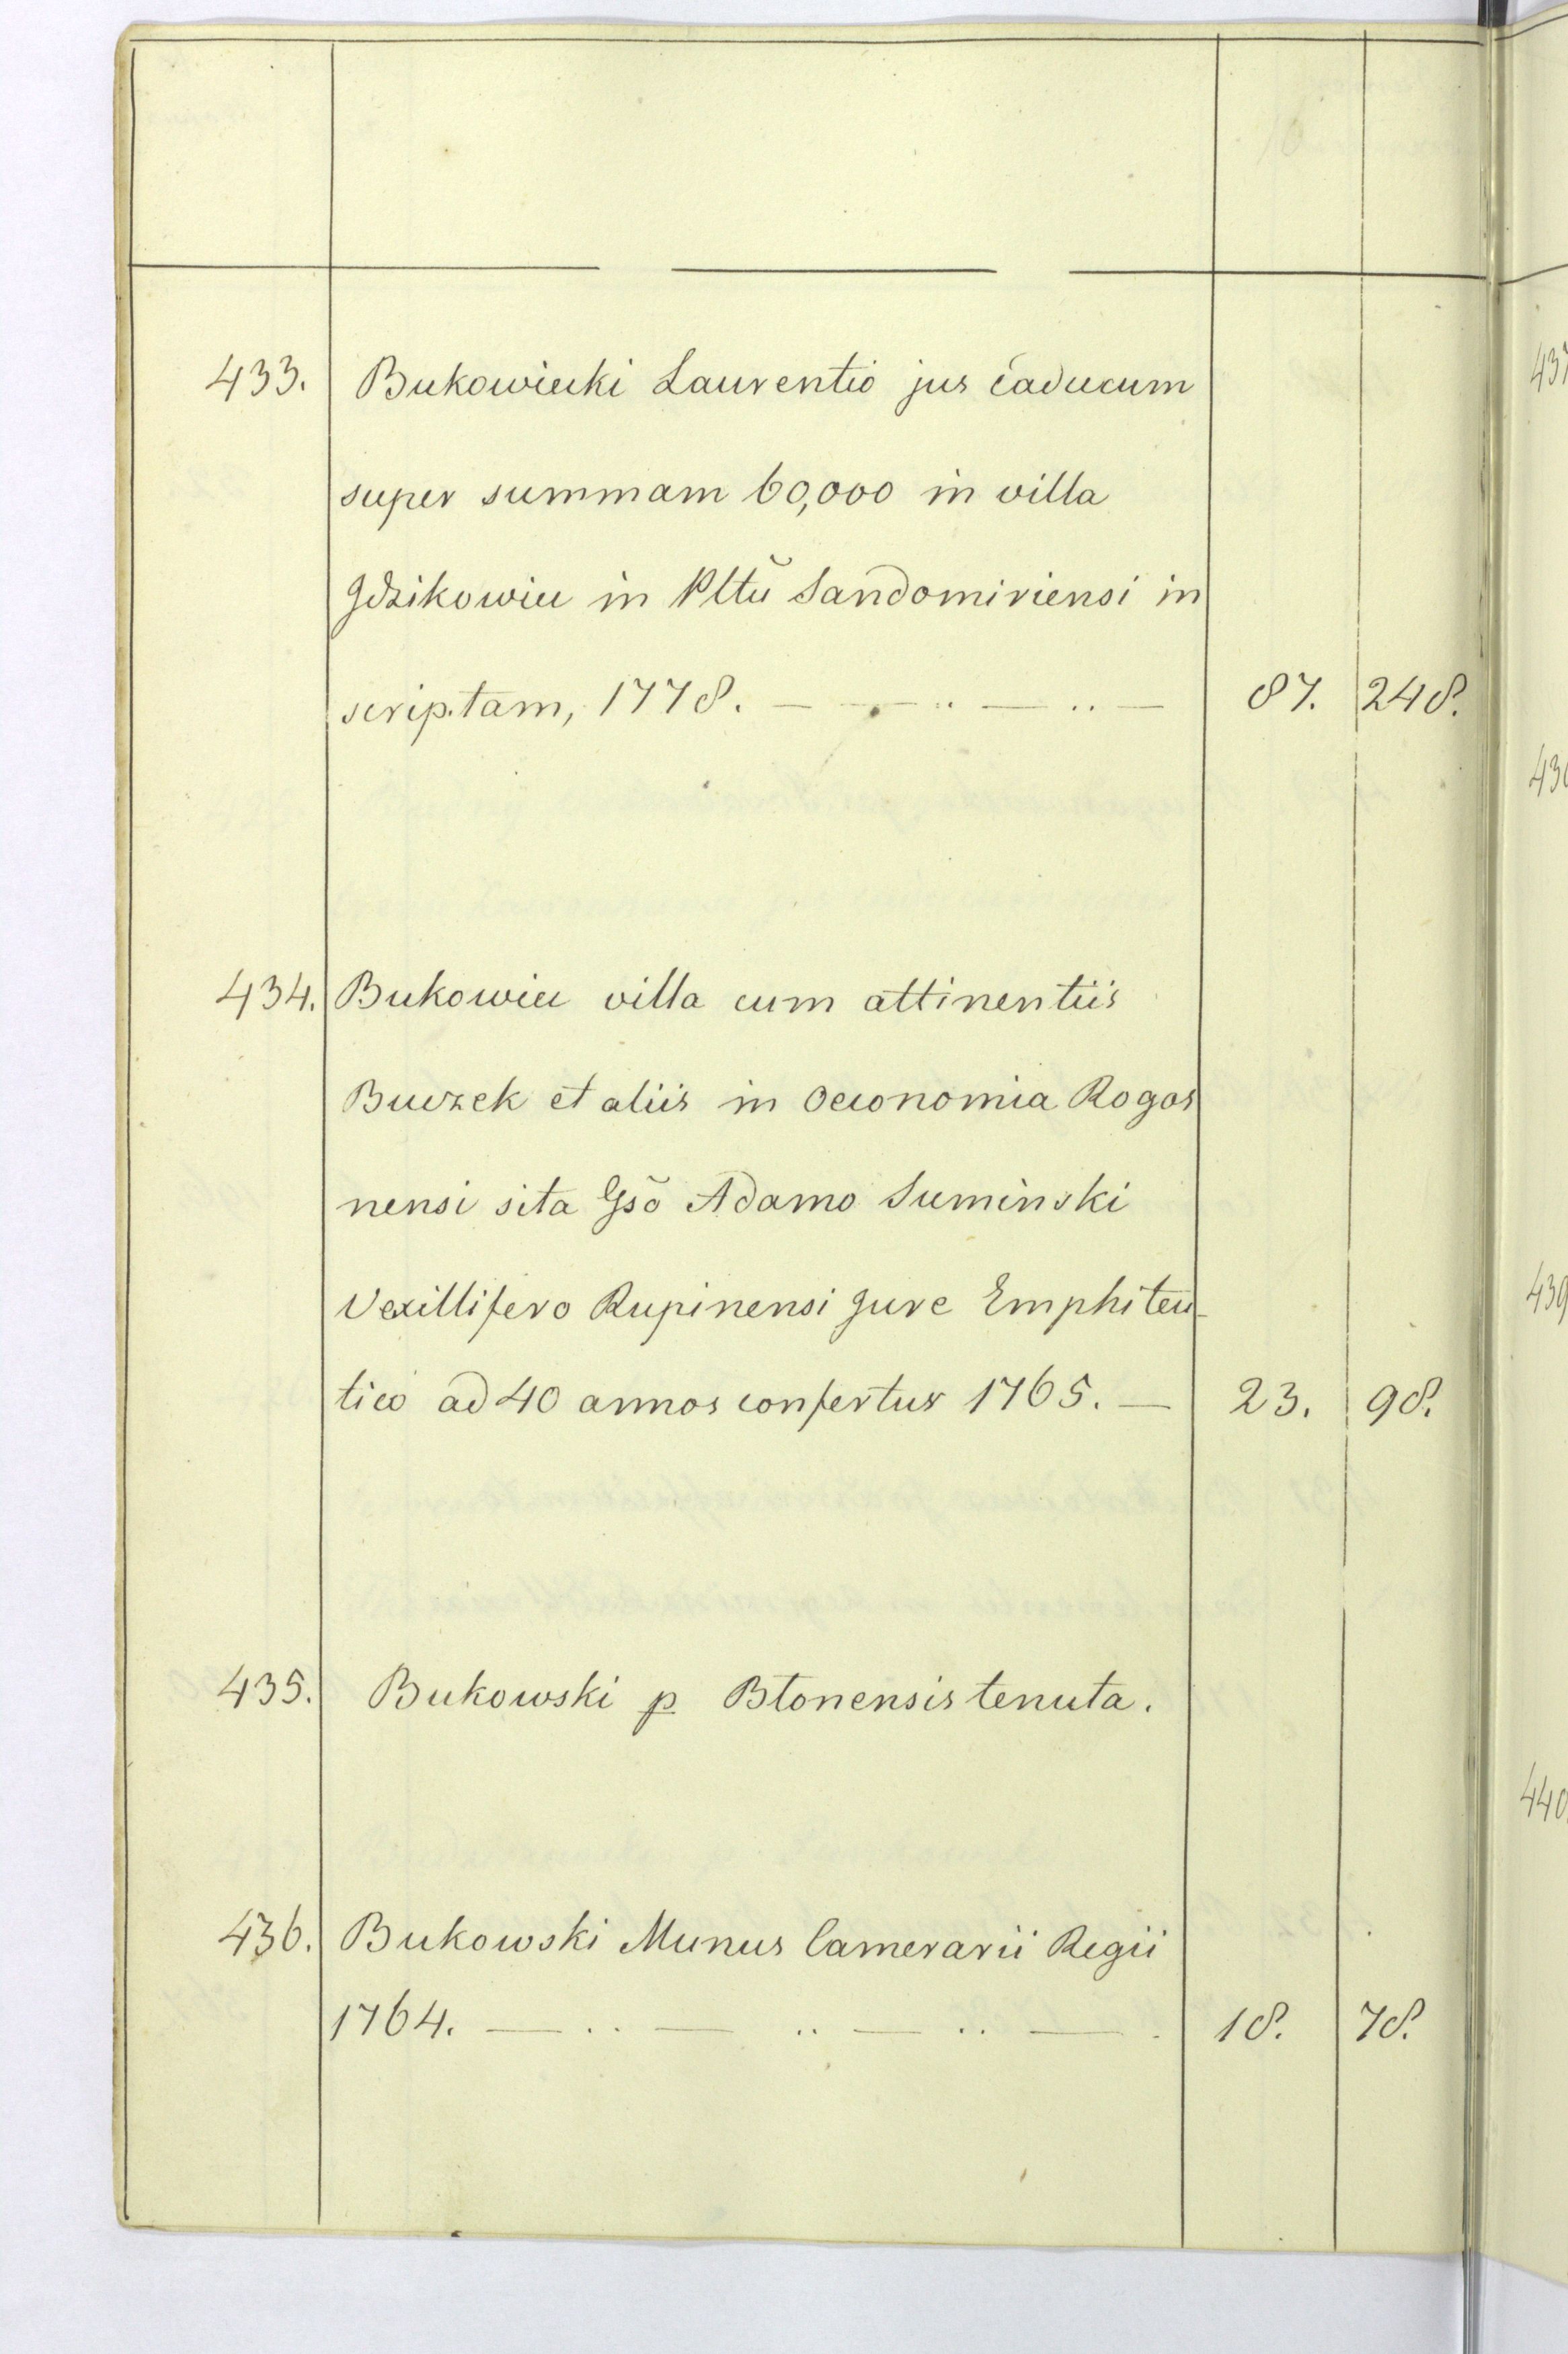 433. Bukowiecki Laurentio jus caducum
super summam 60,000 in villa
Gdzikowiec in Pltũ Sandomiriensi in
scriptam, 1778. — — .. — .. — 87. 248.
434. Bukowiec villa cum attinentiis
Buczek et aliis in Oeconomia Rogos
nensi sita Gsõ Adamo Suminski
Vexillifero Rupinensi Jure Emphiteu-
tico ad 40 annos confertur 1765. — 23. 98.
435. Bukowski p Btonensis tenuta.
436. Bukowski Munus Camerarii Regii
1764. — .. — .. — .. — . 18. 78.
439
440.